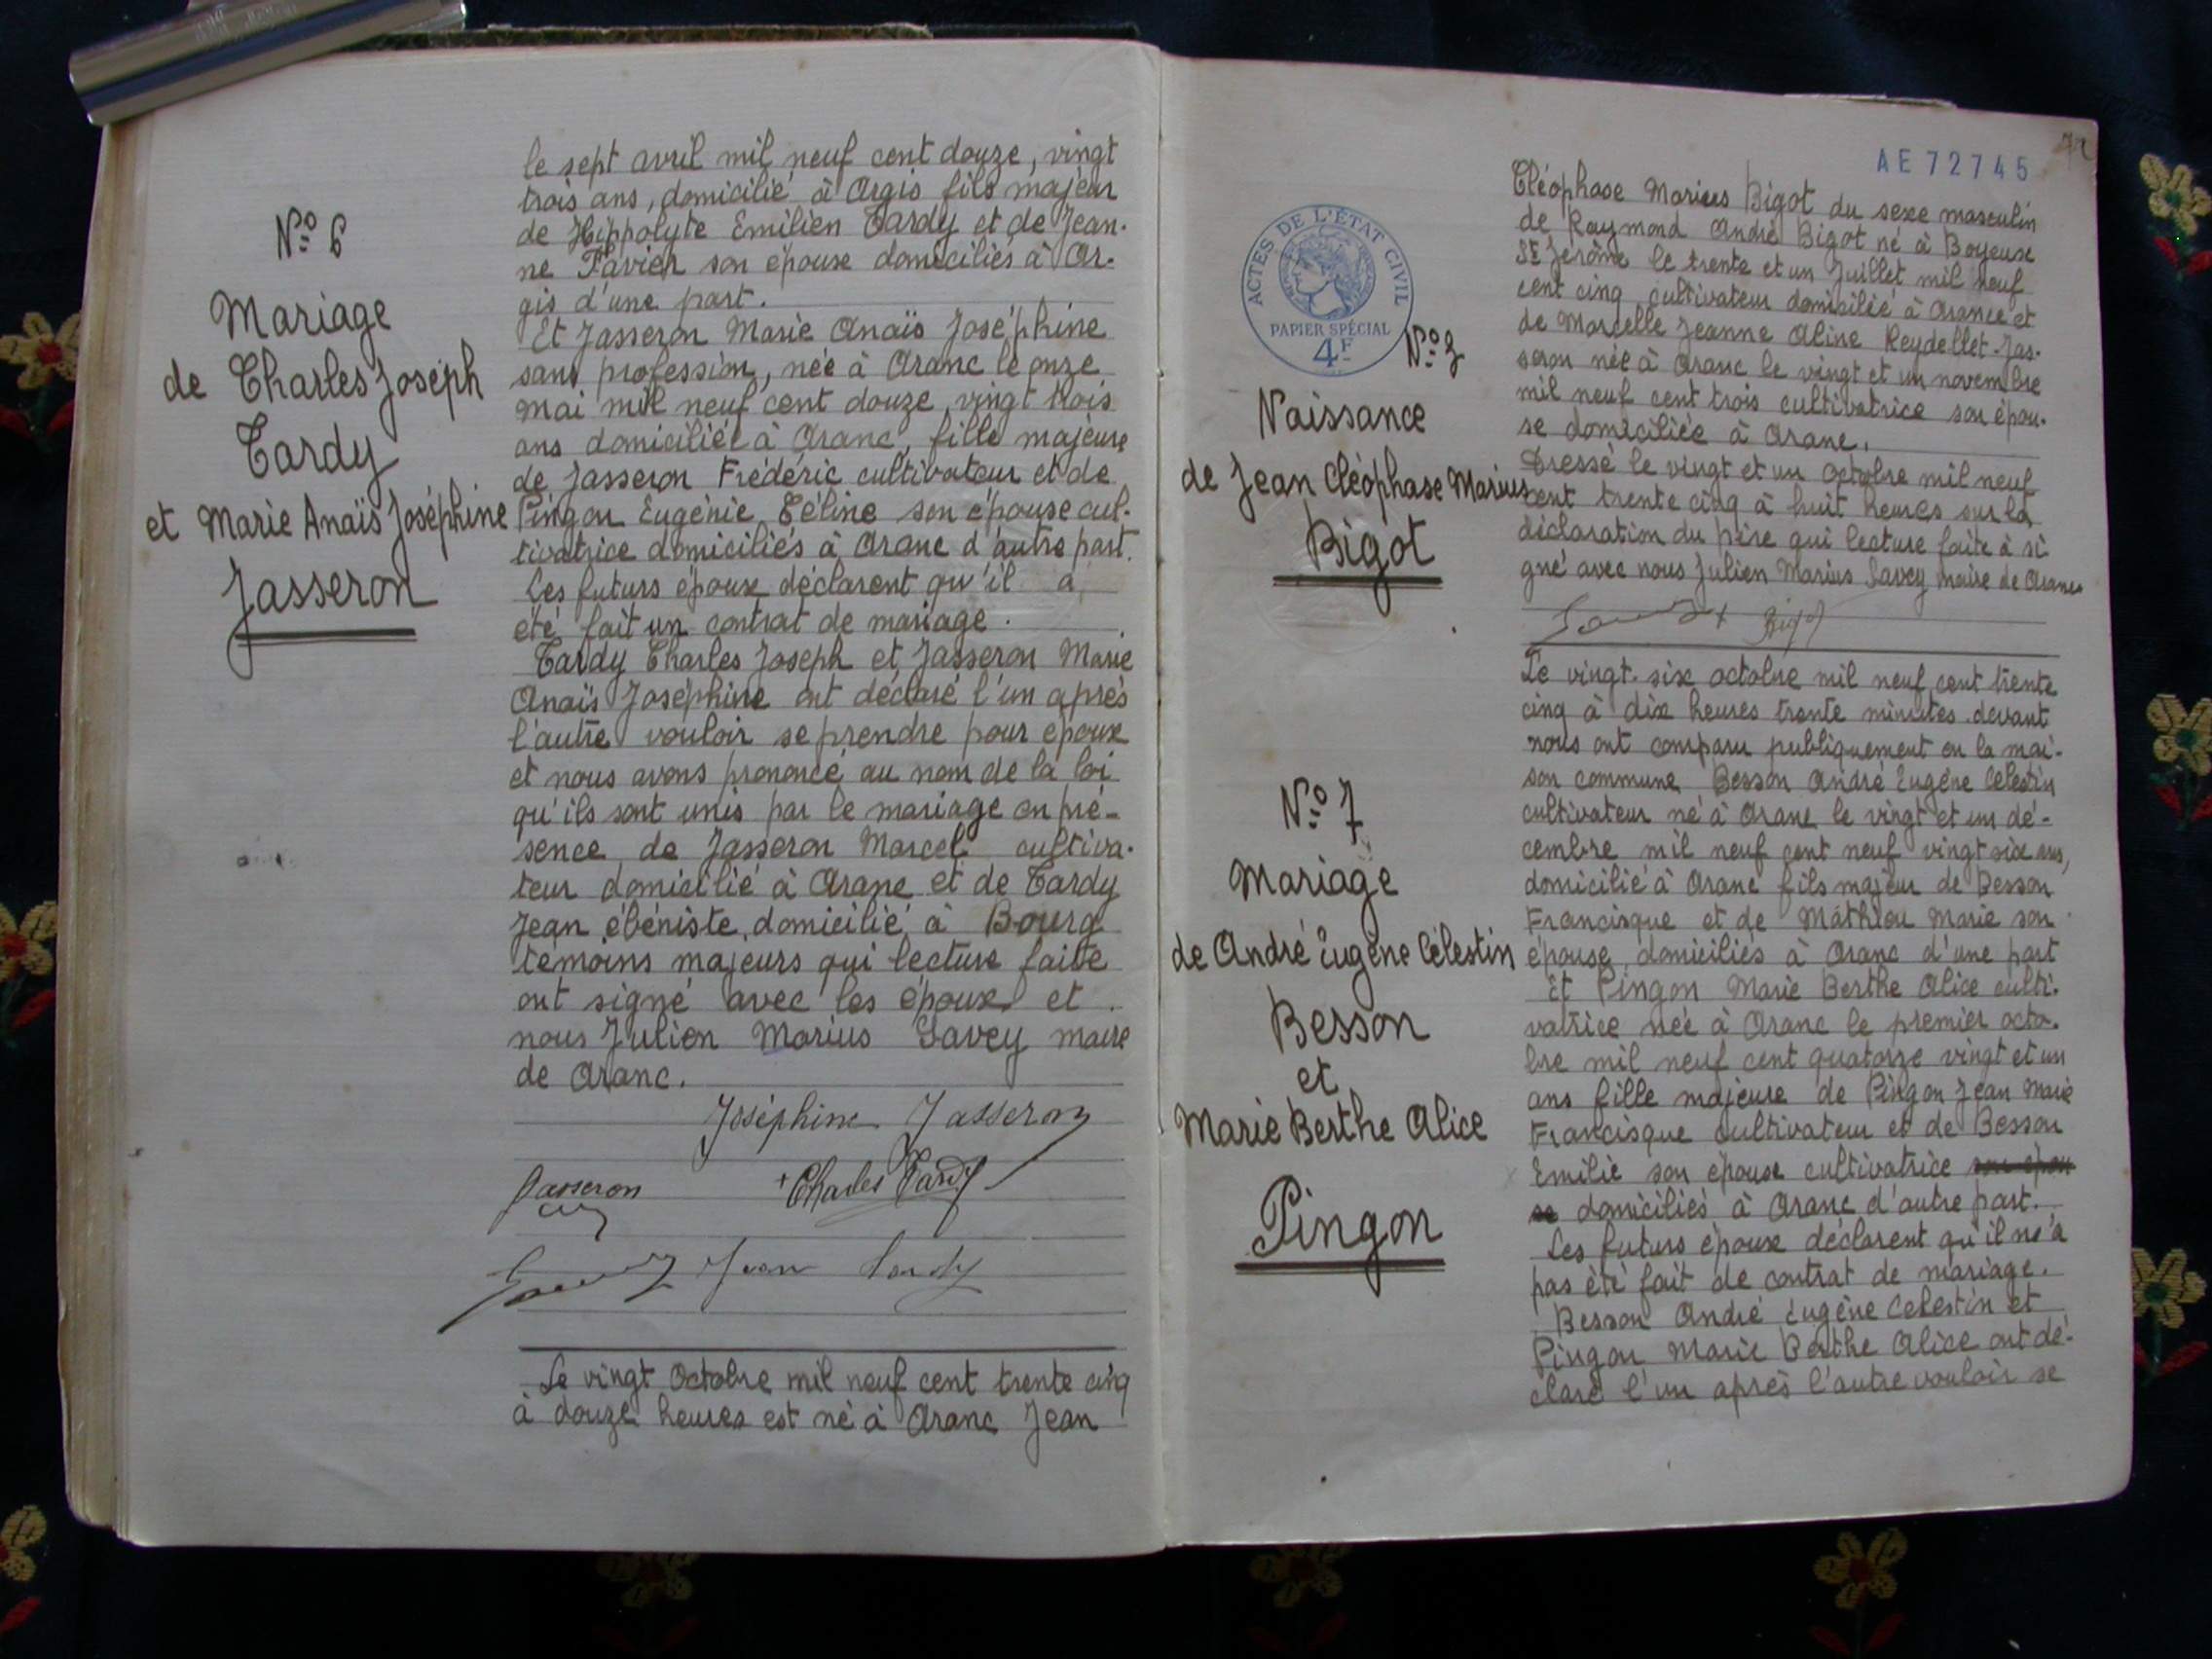 N° 6
Mariage
de Charles Joseph
Tardy
et Marie Anaïs Joséphine
Jasseron
le sept avril mil neuf cent douze, vingt
trois ans, domicilié à Argis fils majeur
de Hippolyte Emilien Tardy et de Jean-
ne Favier son épouse domiciliés à Ar-
gis d'une part.
Et Jasseron Marie Anaïs Joséphine
sans profession, née à Aranc le onze
mai mil neuf cent douze, vingt trois
ans domiciliée à Aranc, fille majeure
de Jasseron Frédéric cultivateur et de
Pingon Eugénie Céline son épouse cul-
tivatrice domiciliés à Aranc d'autre part.
Les futurs époux déclarent qu'il a
été fait un contrat de mariage.
Tardy Charles Joseph et Jasseron Marie
Anaïs Joséphine ont déclaré l'un après
l'autre vouloir se prendre pour époux
et nous avons prononcé au nom de la loi
qu'ils sont unis par le mariage en pré-
sence de Jasseron Marcel cultiva-
teur domicilié à Aranc et de Tardy
Jean ébéniste domicilié à Bourg
témoins majeurs qui lecture faite
ont signé avec les époux et
nous Julien Marius Savey maire
de Aranc.
Joséphine Jasseron
Jasseron + Charles Tardy
Jean Tardy
Le vingt Octobre mil neuf cent trente cinq
à douze heures est né à Aranc Jean
AE 72745
72
ACTES DE L'ÉTAT CIVIL
PAPIER SPÉCIAL
4F
N° 3
Naissance
de Jean Cléophase Marius
Bigot
Cléophase Marius Bigot du sexe masculin
de Raymond André Bigot né à Boyeux
St Jérôme le trente et un Juillet mil neuf
cent cinq cultivateur domicilié à Aranc et
de Marcelle Jeanne Aline Reydellet-Jas-
seron née à Aranc le vingt et un novembre
mil neuf cent trois cultivatrice son épou-
se domiciliée à Aranc.
Dressé le vingt et un octobre mil neuf
cent trente cinq à huit heures sur la
déclaration du père qui lecture faite à si
gné avec nous Julien Marius Savey maire de Aranc
Bigot
N° 7
Mariage
de André Eugène Célestin
Besson
et
Marie Berthe Alice
Pingon
Le vingt-six octobre mil neuf cent trente
cinq à dix heures trente minutes devant
nous ont comparu publiquement en la mai-
son commune Besson André Eugène Célestin
cultivateur né à Aranc le vingt et un dé-
cembre mil neuf cent neuf vingt six ans,
domicilié à Aranc fils majeur de Besson
Francisque et de Mathieu Marie son
épouse domiciliés à Aranc d'une part
Et Pingon Marie Berthe Alice culti-
vatrice née à Aranc le premier octo-
bre mil neuf cent quatorze vingt et un
ans fille majeure de Pingon Jean Marie
Francisque cultivateur et de Besson
Emilie son épouse cultivatrice son épou
se domiciliés à Aranc d'autre part.
Les futurs époux déclarent qu'il n'a
pas été fait de contrat de mariage.
Besson André Eugène Célestin et
Pingon Marie Berthe Alice ont dé-
claré l'un après l'autre vouloir se